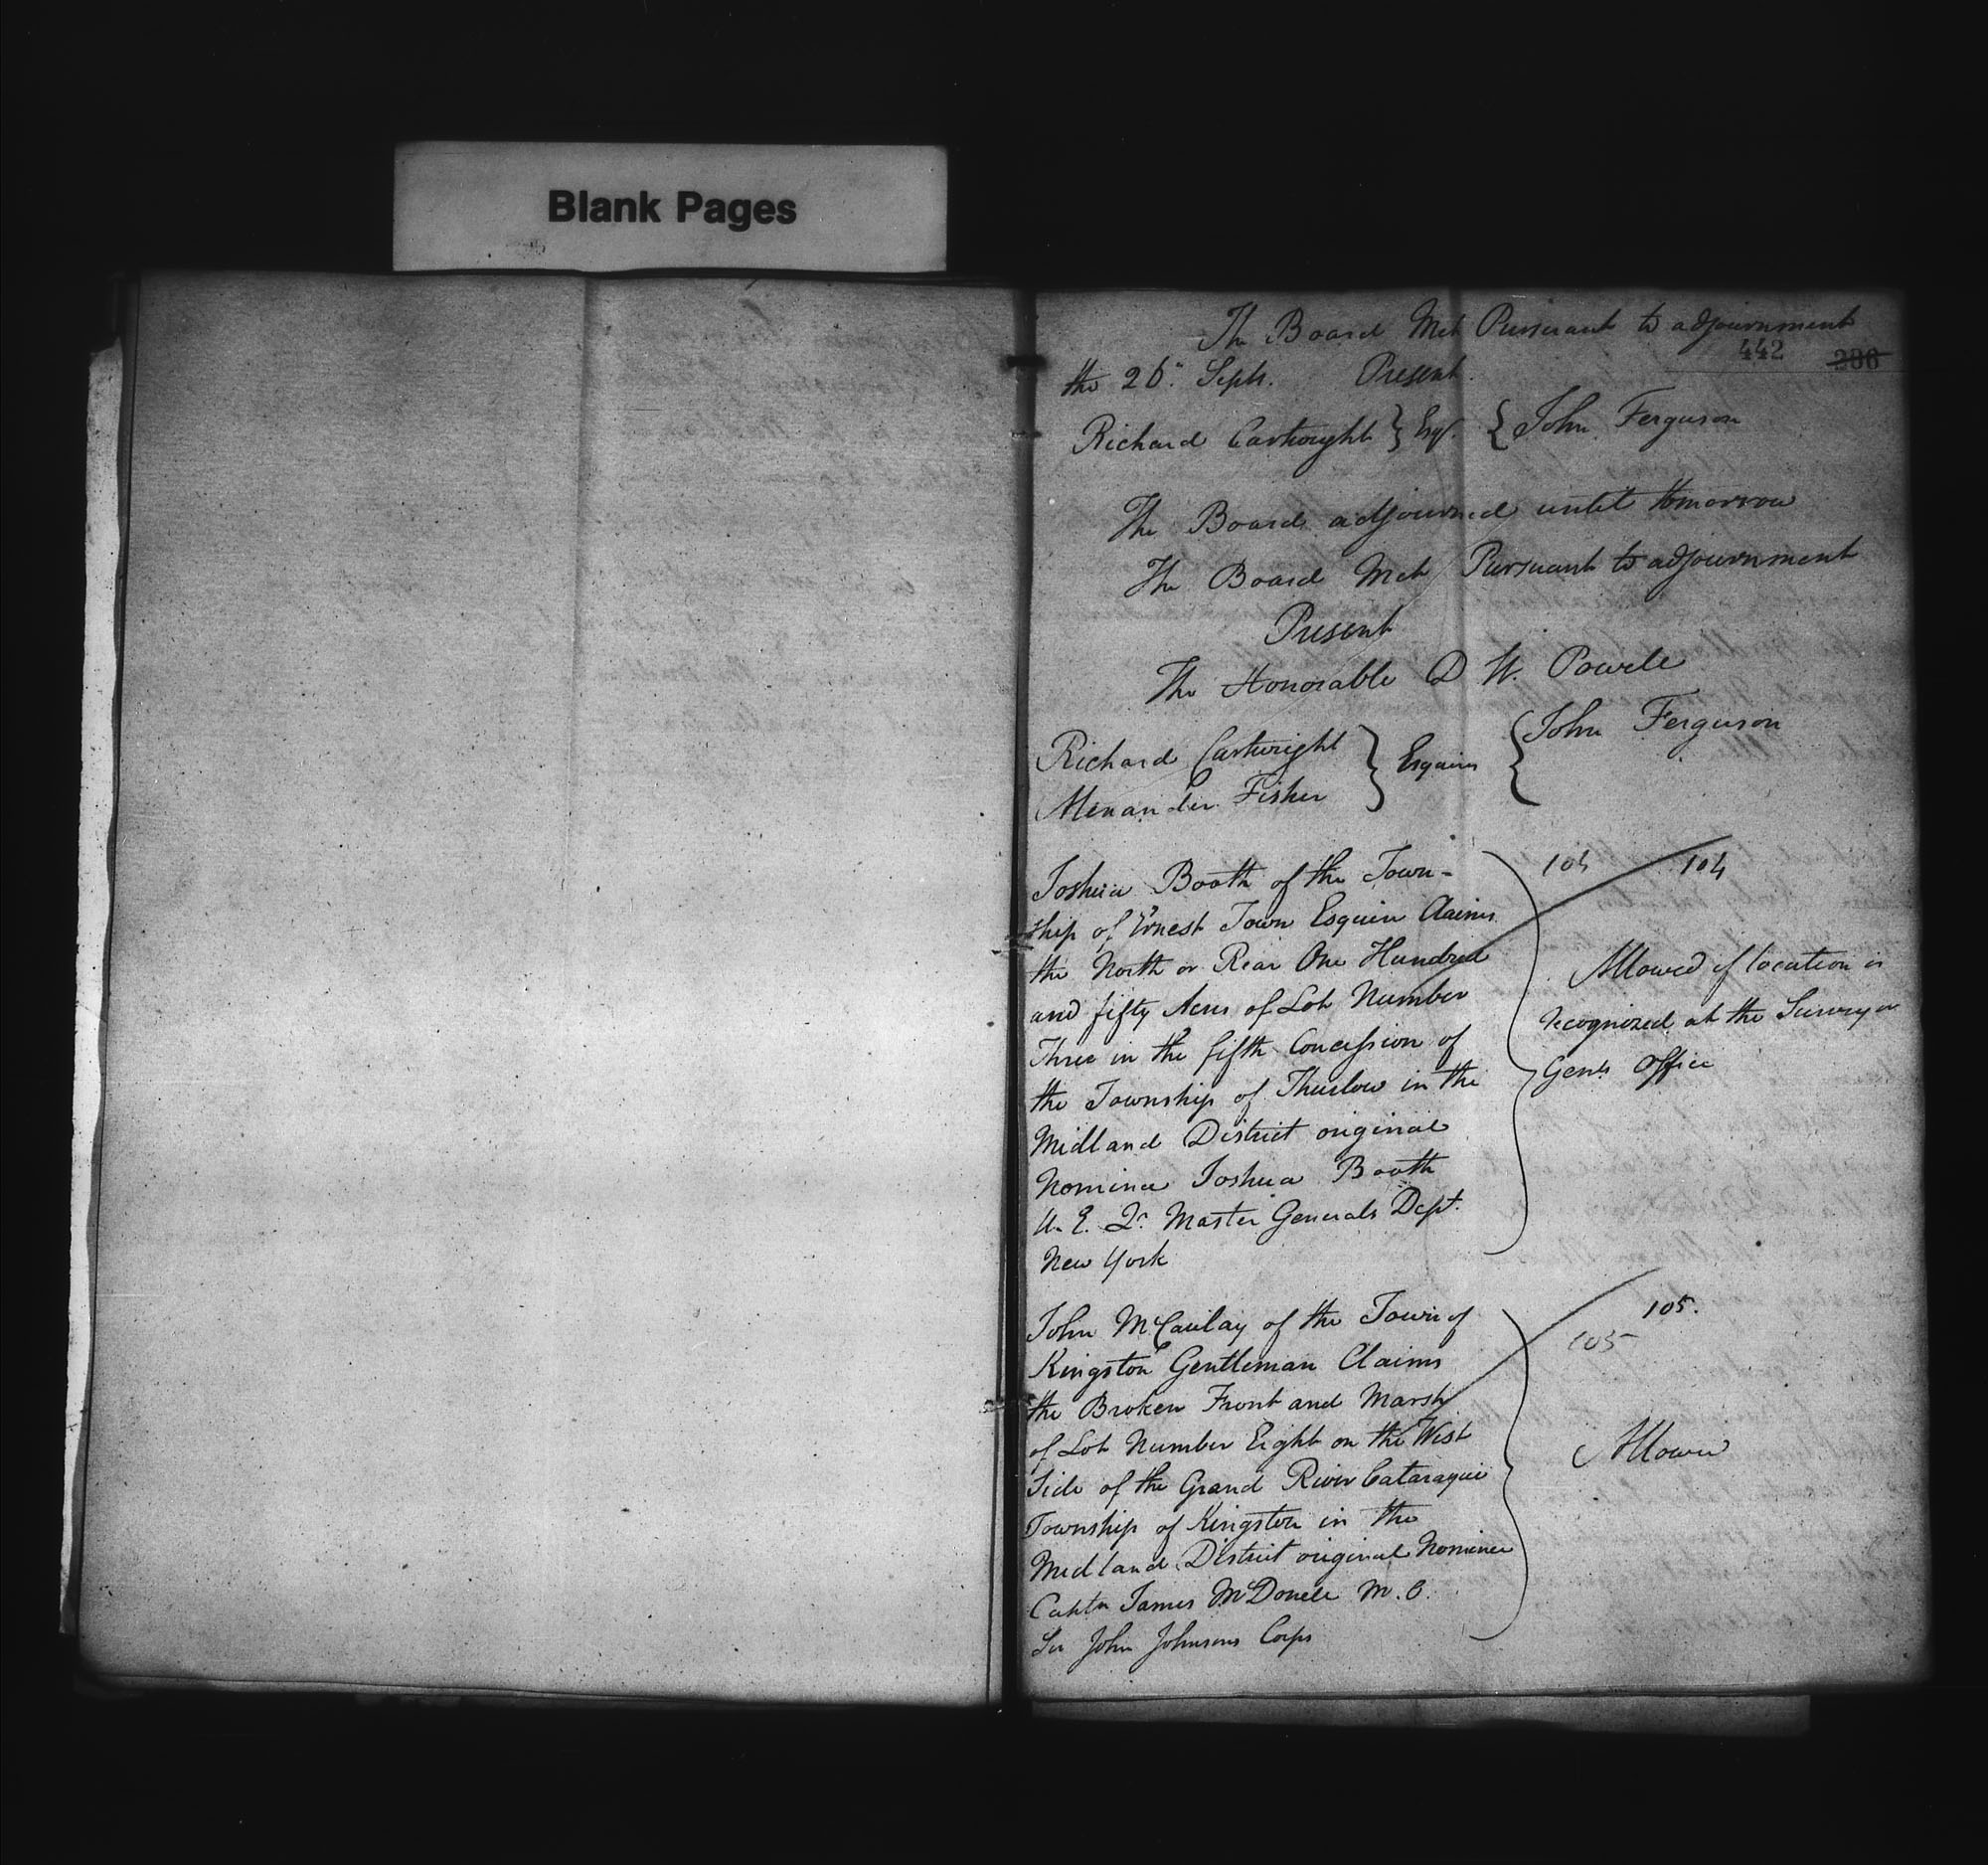 Blank Pages
The Board Met Pursuant to adjournment
442 286
the 26th Sept. Present.
Richard Cartwright } Esqr. { John Ferguson
The Board adjourned until tomorrow
The Board Met Pursuant to adjournment
Present
The Honorable D W. Powell
Richard Cartwright } Esquires { John Ferguson
Alexander Fisher
104 104
Joshua Booth of the Town-
ship of Ernest Town Esquire Claims
the North or Rear One Hundred
and fifty Acres of Lot Number
Three in the fifth Concession of
the Township of Thurlow in the
Midland District original
Nominee Joshua Booth
U. E. Qr. Master Generals Dept.
New York
Allowed if location is
recognized at the Surveyor
Genls Office
John McCaulay of the Town of
Kingston Gentleman Claims
the Broken Front and Marsh
of Lot Number Eight on the West
Side of the Grand River Cataraquie
Township of Kingston in the
Midland District original Nominee
Captn James McDonell M. C.
Sir John Johnsons Corps
105.
105
Allowed